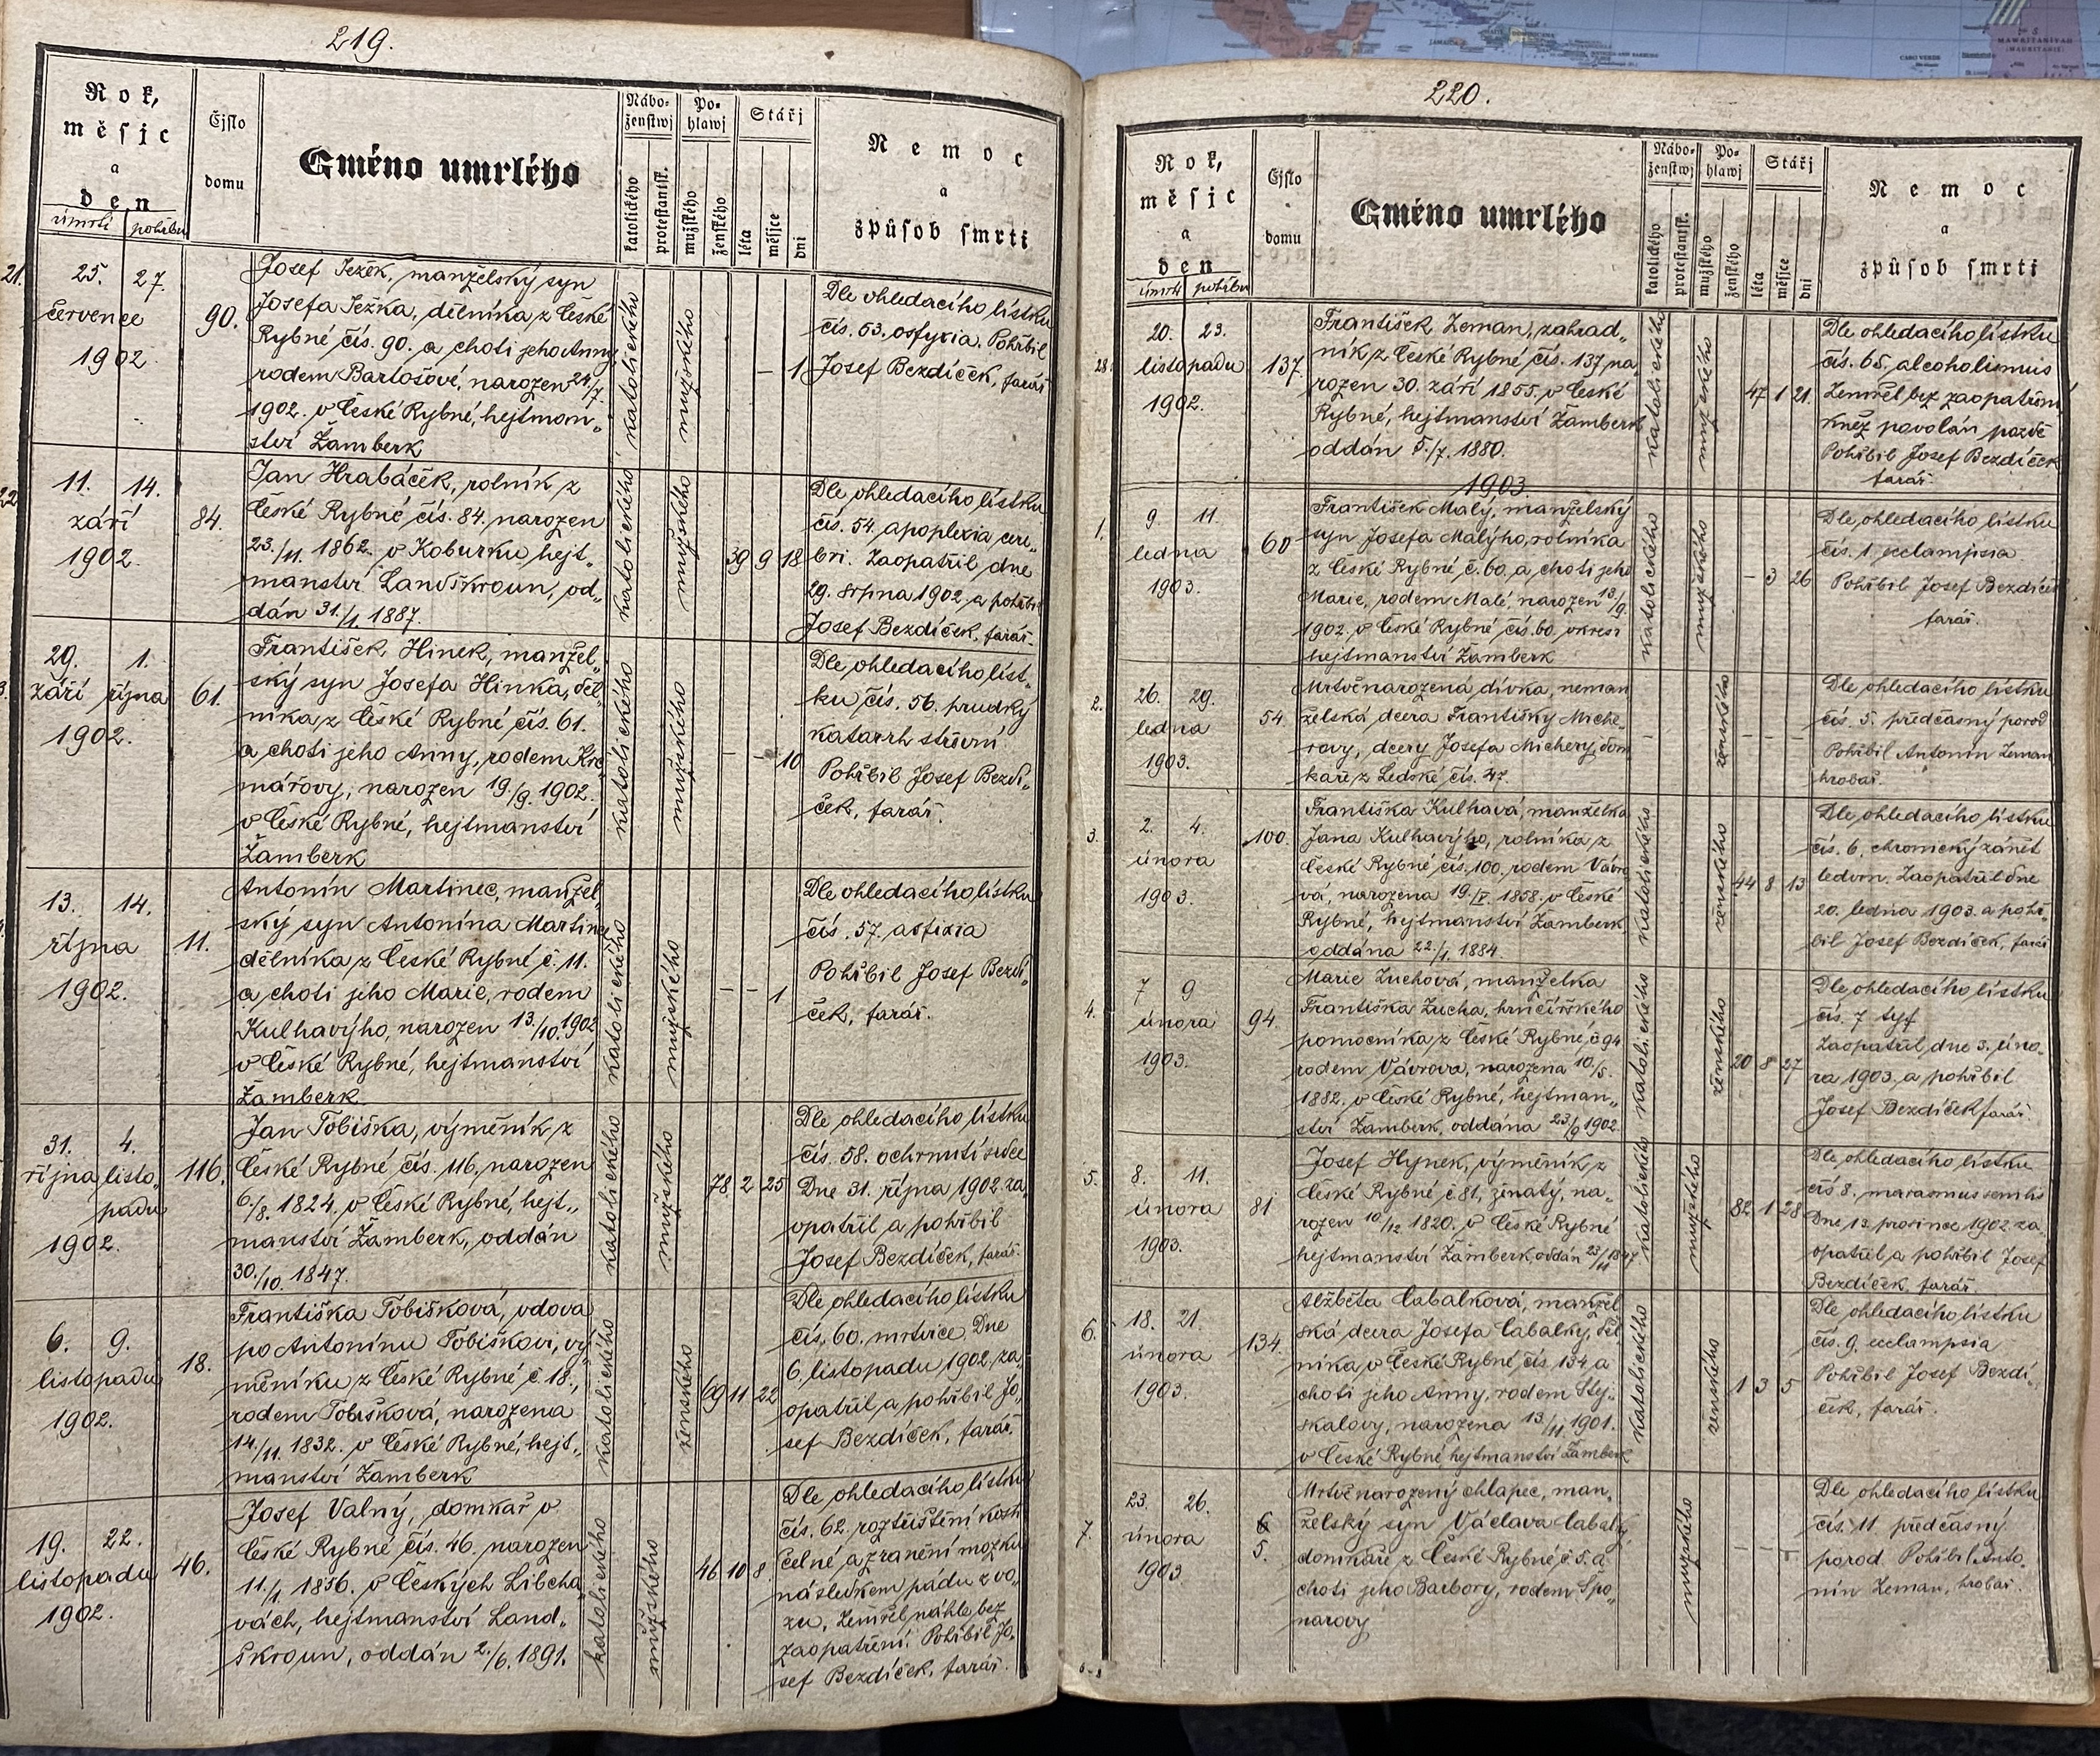 219.
Rok,
měsjc
a
den
úmrtí pohřbu
Čjslo
domu
Gméno umrlého
Nábo-
ženstwj
katolického
protestantsk.
Po-
hlawj
mužského
ženského
Stářj
léta
měsjce
dni
Nemoc
a
způsob smrti
21.
25. 27.
července
1902
90.
Josef Ježek, manželský syn
Josefa Ježka, dělníka z České
Rybné čís. 90. a choti jeho Anny
rodem Bartošové, narozen 24/7.
1902. v České Rybné, hejtman„
ství Žamberk
katolického
mužského
– 1
Dle ohledacího lístku
čís. 53. osfyxia. Pohřbil
Josef Bezdíček, farář
22
11. 14.
září
1902
84.
Jan Hrabáček, rolník z
České Rybné čís. 84. narozen
23./11. 1862. v Koburku hejt„
manství Landškroun, od„
dán 31./1. 1887.
katolického
mužského
39 9 18
Dle ohledacího lístku
čís. 54. apoplexia cere„
bri. Zaopatřil dne
29. srpna 1902 a pohřbil
Josef Bezdíček, farář.
29. 1.
září října
1902.
61.
František Hinek, manžel„
ský syn Josefa Hinka, děl
níka z České Rybné čís. 61.
a choti jeho Anny, rodem Krč
mářovy, narozen 19./9. 1902.
v České Rybné, hejtmanství
Žamberk
katolického
mužského
– – 10
Dle ohledacího líst„
ku čís. 56. prudký
katarrh střevní
Pohřbil Josef Bezdí„
ček, farář.
13. 14.
října
1902.
11.
Antonín Martinec, manžel„
ský syn Antonína Martince
dělníka z České Rybné č. 11.
a choti jeho Marie, rodem
Kulhavýho, narozen 13./10. 1902
v České Rybné, hejtmanství
Žamberk
katolického
mužského
– – 1
Dle ohledacího lístku
čís. 57. asfixia
Pohřbil Josef Bezdí„
ček, farář.
31. 4.
října listo„
padu
1902.
116.
Jan Tobiška, výměník z
České Rybné čís. 116, narozen
6./8. 1824. v České Rybné, hejt„
manství Žamberk, oddán
30./10. 1847.
katolického
mužského
78 2 25
Dle ohledacího lístku
čís. 58. ochrnutí srdce
Dne 31. října 1902 za„
opatřil a pohřbil
Josef Bezdíček, farář.
6. 9.
listopadu
1902.
18.
Františka Tobišková, vdova
po Antonínu Tobiškovi, vý„
měníku z České Rybné č. 18.,
rodem Tobišková, narozena
14./11. 1832. v České Rybné, hejt„
manství Žamberk
katolického
ženského
69 11 22
Dle ohledacího lístku
čís. 60. mrtvice. Dne
6. listopadu 1902. za„
opatřil a pohřbil Jo„
sef Bezdíček, farář.
19. 22.
listopadu
1902.
46.
Josef Valný, domkař v
České Rybné čís. 46. narozen
11./1. 1856. v Českých Libcha„
vách, hejtmanství Land„
škroun, oddán 2./6. 1891.
katolického
mužského
46 10 8
Dle ohledacího lístku
čís. 62. roztříštění kosti
čelné a zranění mozku
následkem pádu z vo„
zu, Zemřel náhle bez
zaopatření. Pohřbil Jo„
sef Bezdíček, farář.
220.
Rok,
měsjc
a
den
úmrtí pohřbu
Čjslo
domu
Gméno umrlého
Nábo-
ženstwj
katolického
protestantsk.
Po-
hlawj
mužského
ženského
Stářj
léta
měsjce
dni
Nemoc
a
způsob smrti
28.
20. 23.
listopadu
1902.
137.
František Zeman, zahrad„
ník z České Rybné čís. 137 na„
rozen 30. září 1855. v České
Rybné, hejtmanství Žamberk
oddán 5./7. 1880.
katolického
mužského
47 1 21.
Dle ohledacího lístku
čís. 65. alcoholismus
Zemřel bez zaopatření
kněz povolán pozdě
Pohřbil Josef Bezdíček
farář.
1903.
1.
9. 11.
ledna
1903.
60
František Malý, manželský
syn Josefa Malýho, rolníka
z České Rybné č. 60, a choti jeho
Marie, rodem Malé, narozen 13/9.
1902. v České Rybné čís. 60. okresí
hejtmanství Žamberk
katolického
mužského
– 3 26
Dle ohledacího lístku
čís. 1. ecclampsia
Pohřbil Josef Bezdíček
farář.
2.
26. 29.
ledna
1903.
54.
Mrtvěnarozená dívka, neman
želská dcera Františky Miche„
rovy, dcery Josefa Michery, dom
kaře z Ledské čís. 47.
–
ženského
– – –
Dle ohledacího lístku
čís. 5. předčasný porod
Pohřbil Antonín Zeman
hrobař.
3.
2. 4.
února
1903.
100.
Františka Kulhavá, manželka
Jana Kulhavýho, rolníka z
České Rybné čís. 100. rodem Vávro
vá, narozena 19./V. 1858. v České
Rybné, hejtmanství Žamberk
oddána 22./1. 1884.
katolického
ženského
44 8 13
Dle ohledacího lístku
čís. 6. chronický zánět
ledvin. Zaopatřil dne
20. ledna 1903. a pohř„
bil Josef Bezdíček, farář
4.
7 9
února
1903.
94.
Marie Zuchová, manželka
Františka Zucha, hrnčířského
pomocníka z České Rybné, č 94
rodem Vávrova, narozena 10./5.
1882. v České Rybné, hejtman„
ství Žamberk, oddána 23./9 1902.
katolického
ženského
20 8 27
Dle ohledacího lístku
čís. 7 tyf
Zaopatřil dne 3. úno„
ra 1903. a pohřbil
Josef Bezdíček farář
5.
8. 11.
února
1903.
81
Josef Hynek, výměník z
České Rybné č. 81, ženatý, na„
rozen 10/12. 1820. v České Rybné
hejtmanství Žamberk, oddán 23/11 1847
katolického
mužského
82 1 28
Dle ohledacího lístku
čís 8. marasmus senilis
Dne 13. prosince 1902 za„
opatřil a pohřbil Josef
Bezdíček, farář.
6.
18. 21.
února
1903.
134.
Alžběta Cabalková, manžel
ská dcera Josefa Cabalky, děl
níka v České Rybné čís. 134 a
choti jeho Anny, rodem Stej„
skalovy, narozena 13./11. 1901.
v České Rybné hejtmanství Žamberk
katolického
ženského
1 3 5
Dle ohledacího lístku
čís. 9. ecclampsia
Pohřbil Josef Bezdí„
ček, farář.
7.
23. 26.
února
1903
5.
Mrtvěnarozený chlapec, man„
želský syn Václava Cabalky
domkáře z České Rybné č 5. a
choti jeho Barbory, rodem Špo„
narovy
mužského
– – –
Dle ohledacího lístku
čís. 11. předčasný
porod. Pohřbil Anto„
nín Zeman, hrobař.